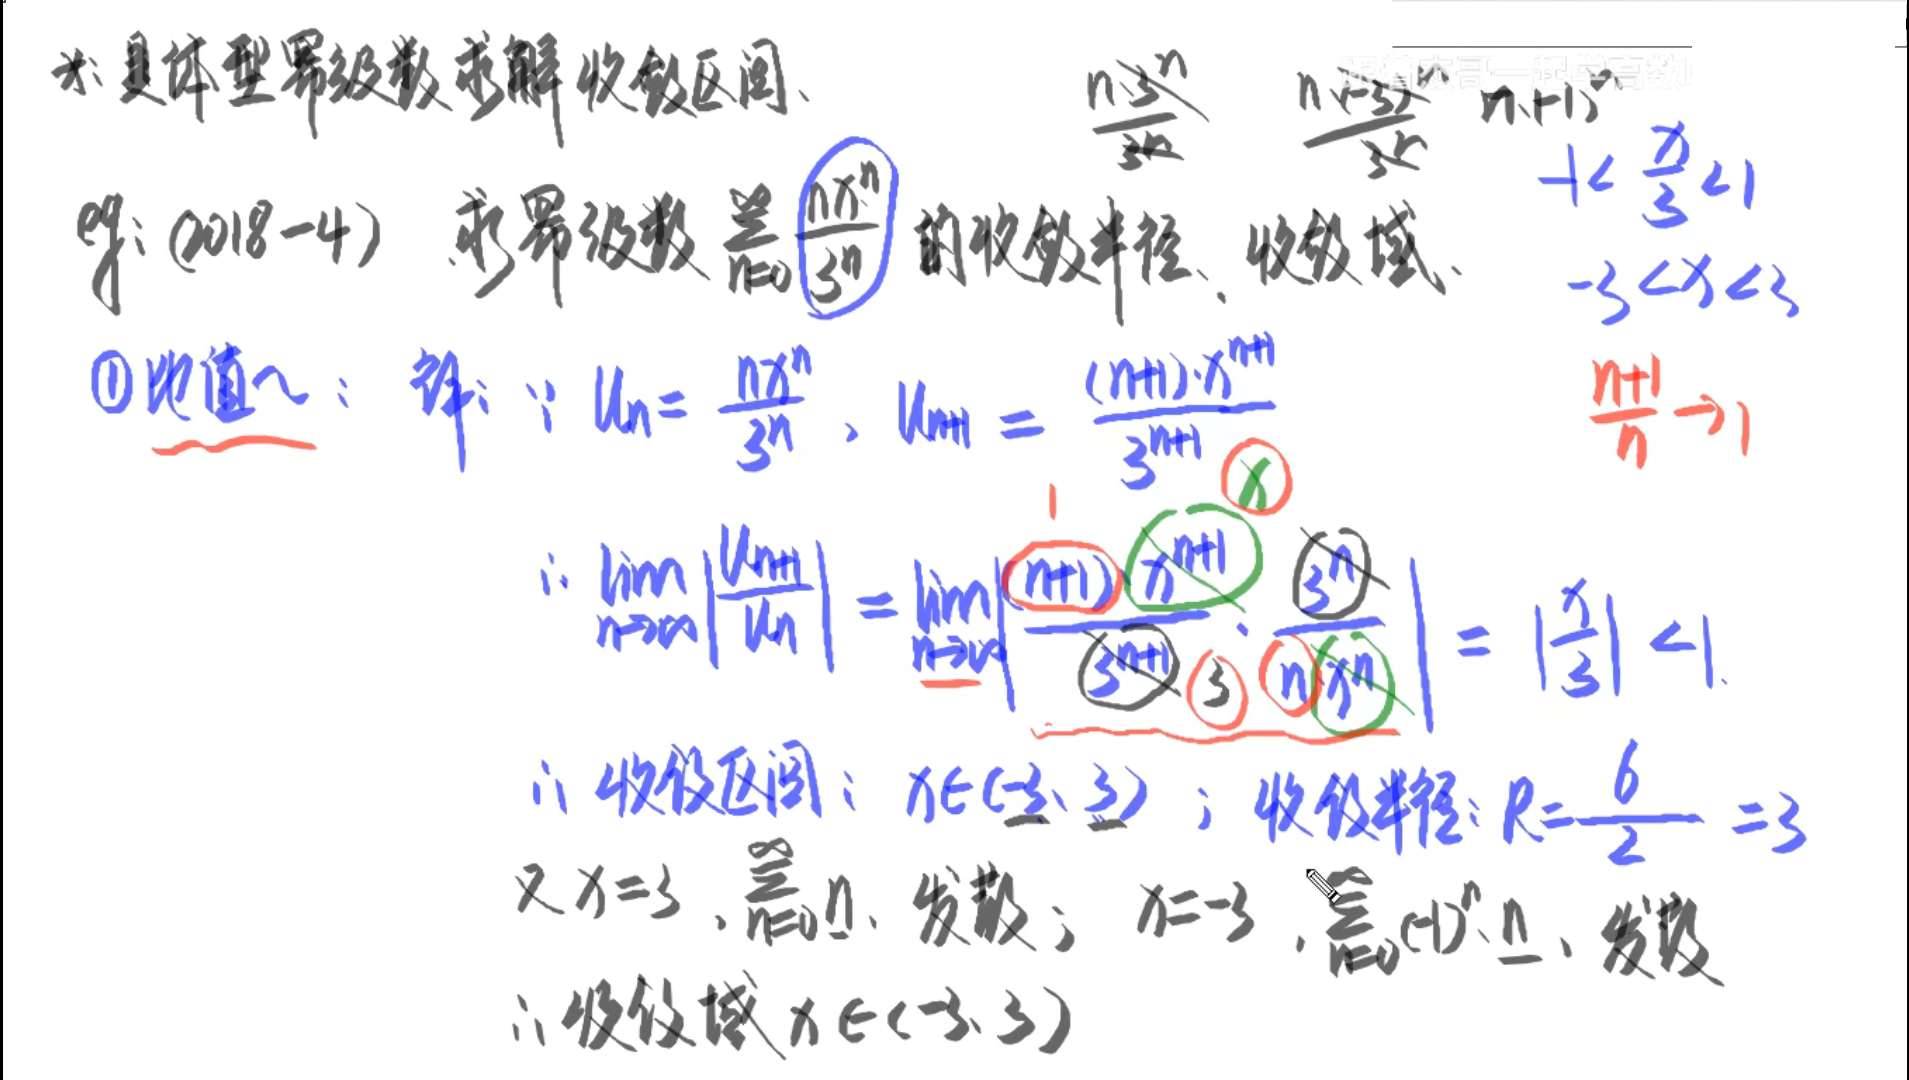 ※: 具体型幂级数求解收敛区间.
n·3ⁿ/3ⁿ  n·(-3)ⁿ/3ⁿ  n·(-1)ⁿ
跟着杰哥一起学高数
-1 < x/3 < 1
eg: (2018-4) 求幂级数 ∑_{n=0}^{∞} nxⁿ/3ⁿ 的收敛半径、收敛域.
-3 < x < 3
① 比值~: 解: ∵ Uₙ = nxⁿ/3ⁿ , Uₙ₊₁ = (n+1)·xⁿ⁺¹/3ⁿ⁺¹
(n+1)/n → 1
1  x
∴ lim_{n→∞} |Uₙ₊₁/Uₙ| = lim_{n→∞} |(n+1)·xⁿ⁺¹/3ⁿ⁺¹ · 3ⁿ/(n·xⁿ)| = |x/3| < 1.
3
∴ 收敛区间: x∈(-3, 3) ; 收敛半径: R = 6/2 = 3
又 x=3 , ∑_{n=0}^{∞} n, 发散; x=-3 , ∑_{n=0}^{∞} (-1)ⁿ·n , 发散
∴ 收敛域 x∈(-3, 3)